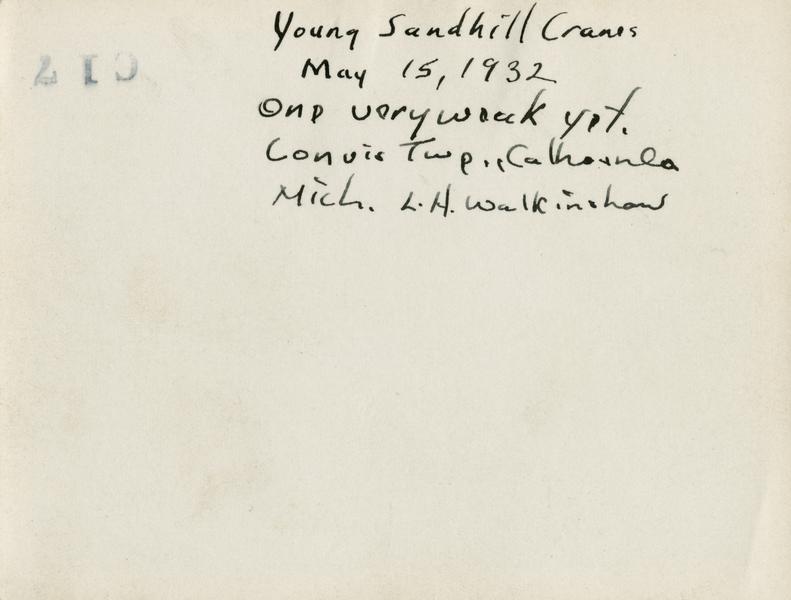 Young Sandhill Cranes
May 15, 1932
One very weak yet.
Convis Twp., Calhoun Co
Mich. L.H. Walkinshaw